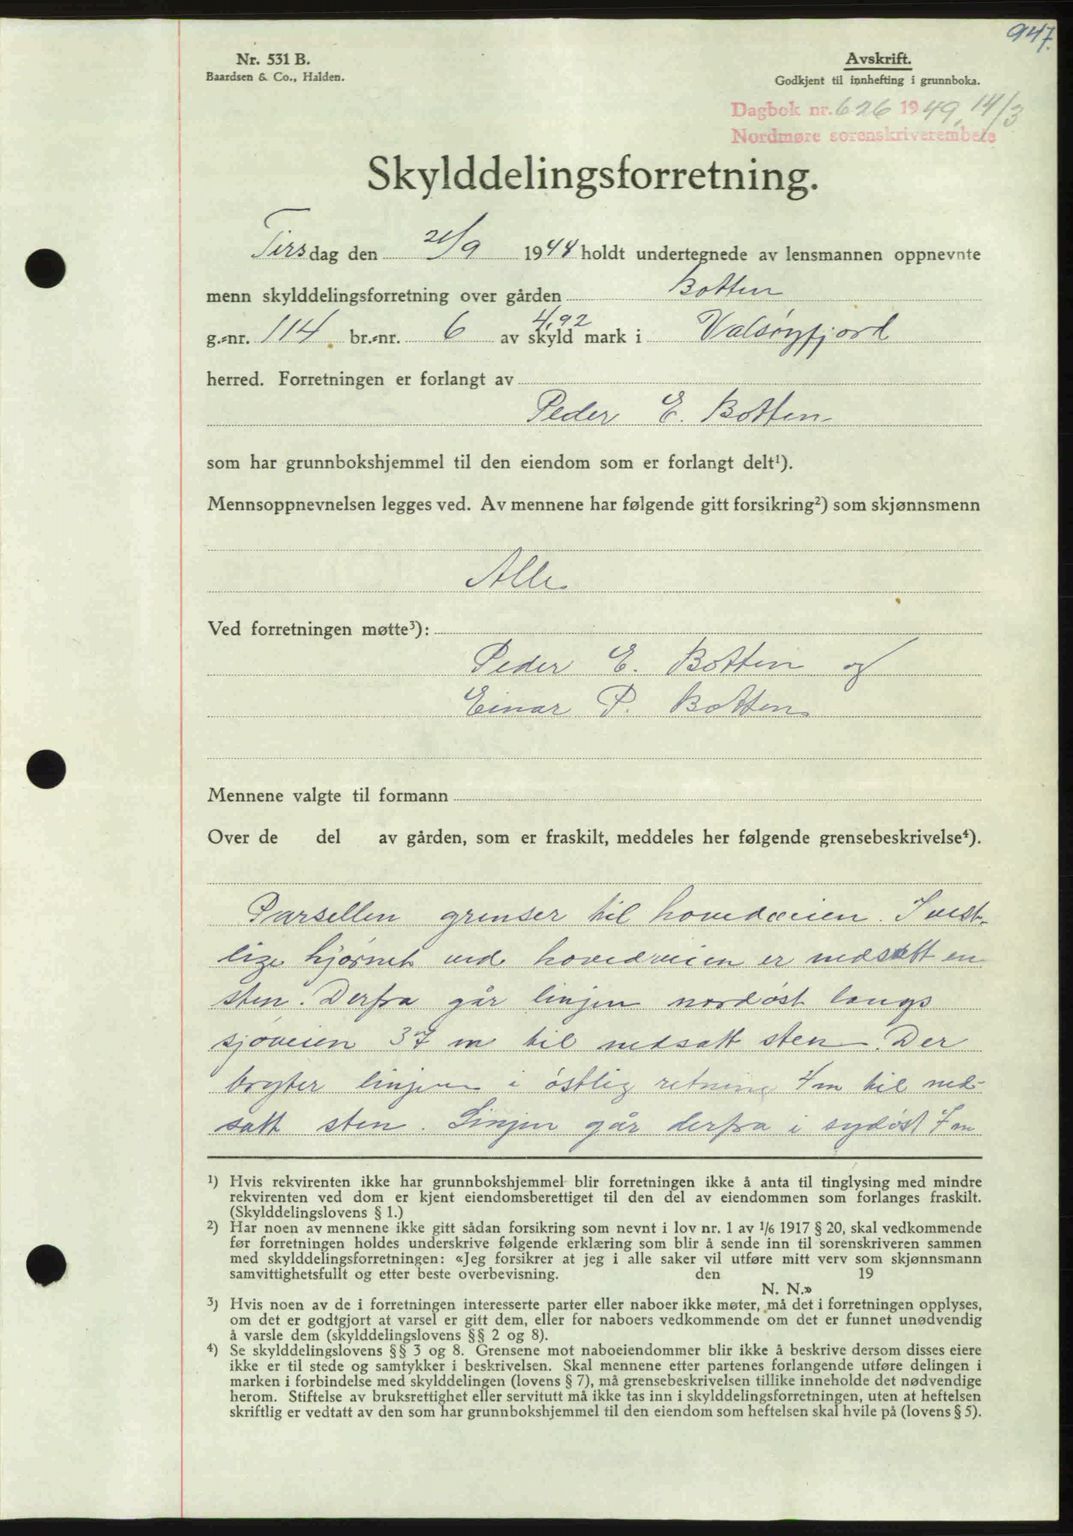 947.
Nr. 531 B.
Baardsen & Co., Halden.
Avskrift.
Godkjent til innhefting i grunnboka.
Dagbok nr. 626 1949, 14/3
Nordmøre sorenskriverembete
Skylddelingsforretning.
Tirsdag den 21/9 1948 holdt undertegnede av lensmannen oppnevnte
menn skylddelingsforretning over gården Botten
g.-nr. 114 br.-nr. 6 av skyld 4,92 mark i Valsøyfjord
herred. Forretningen er forlangt av
Peder E. Botten
som har grunnbokshjemmel til den eiendom som er forlangt delt¹).
Mennsoppnevnelsen legges ved. Av mennene har følgende gitt forsikring²) som skjønnsmenn
Alle
Ved forretningen møtte³):
Peder E. Botten og
Einar P. Botten
Mennene valgte til formann
Over de del av gården, som er fraskilt, meddeles her følgende grensebeskrivelse⁴).
Parsellen grenser til hovedveien. I vest-
lige hjørnet ved hovedveien er nedsatt en
sten. Derfra går linjen nordøst langs
sjøveien 37 m til nedsatt sten. Der
bryter linjen i østlig retning 4 m til ned-
satt sten. Linjen går derfra i sydøst 7 m
¹) Hvis rekvirenten ikke har grunnbokshjemmel blir forretningen ikke å anta til tinglysing med mindre
rekvirenten ved dom er kjent eiendomsberettiget til den del av eiendommen som forlanges fraskilt.
(Skylddelingslovens § 1.)
²) Har noen av mennene ikke gitt sådan forsikring som nevnt i lov nr. 1 av 1/6 1917 § 20, skal vedkommende
før forretningen holdes underskrive følgende erklæring som blir å sende inn til sorenskriveren sammen
med skylddelingsforretningen: «Jeg forsikrer at jeg i alle saker vil utføre mitt verv som skjønnsmann
samvittighetsfullt og etter beste overbevisning. den 19
N. N.»
³) Hvis noen av de i forretningen interesserte parter eller naboer ikke møter, må det i forretningen opplyses,
om det er godtgjort at varsel er gitt dem, eller for naboers vedkommende om det er funnet unødvendig
å varsle dem (skylddelingslovens §§ 2 og 8).
⁴) Se skylddelingslovens §§ 3 og 8. Grensene mot naboeiendommer blir ikke å beskrive dersom disses eiere
ikke er til stede og samtykker i beskrivelsen. Skal mennene etter partenes forlangende utføre delingen i
marken i forbindelse med skylddelingen (lovens § 7), må grensebeskrivelsen tillike inneholde det nødvendige
herom. Stiftelse av bruksrettighet eller servitutt må ikke tas inn i skylddelingsforretningen, uten at heftelsen
skriftlig er vedtatt av den som har grunnbokshjemmel til den eiendom som heftelsen skal hvile på (lovens § 5).